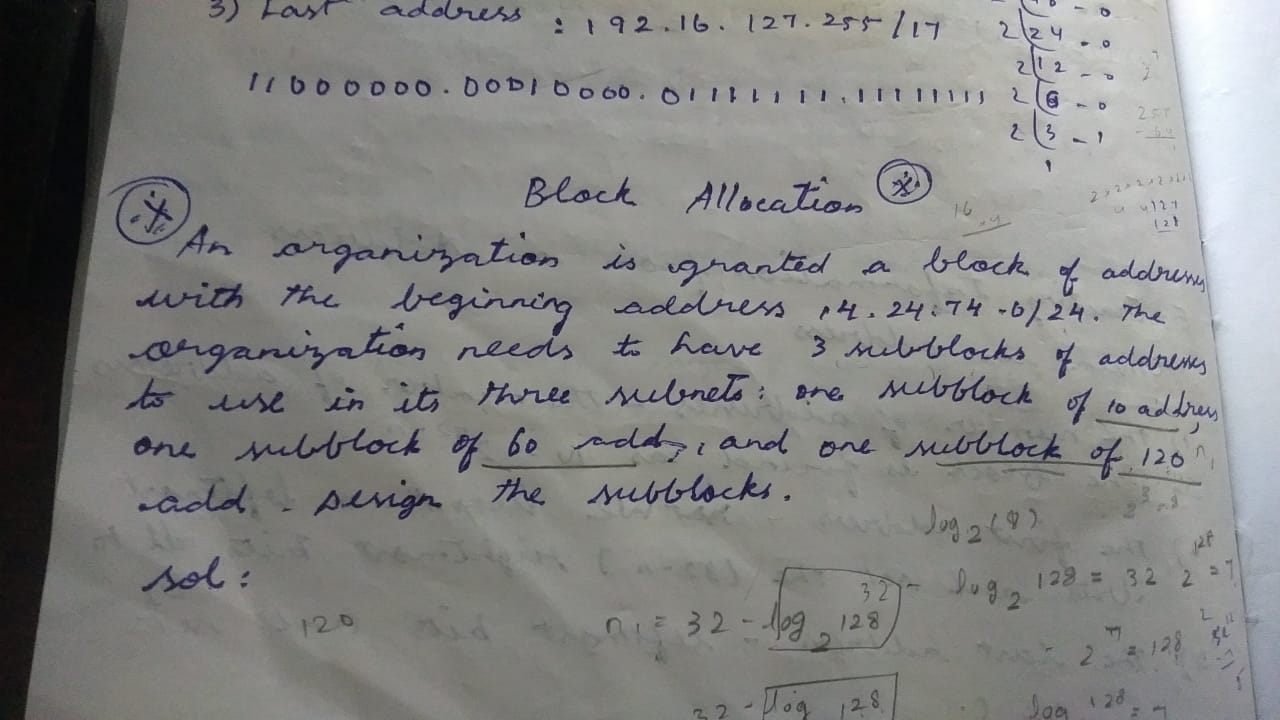 3) Last address : 192.16.127.255/17
11000000.00010000.01111111.11111111
2 24 - 0
2 12 - 0
2 6 - 0
2 3 - 1
1
Block Allocation
An organization is granted a block of addresses
with the beginning address 14.24.74.0/24. The
organization needs to have 3 subblocks of addresses
to use in its three subnets: one subblock of 10 address,
one subblock of 60 add, and one subblock of 120
add. Design the subblocks.
log2(8)
sol:
32 - log2 128 = 32
120
n1 = 32 - log2 128
2^7 = 128
32 - log 128
log 128 = 7